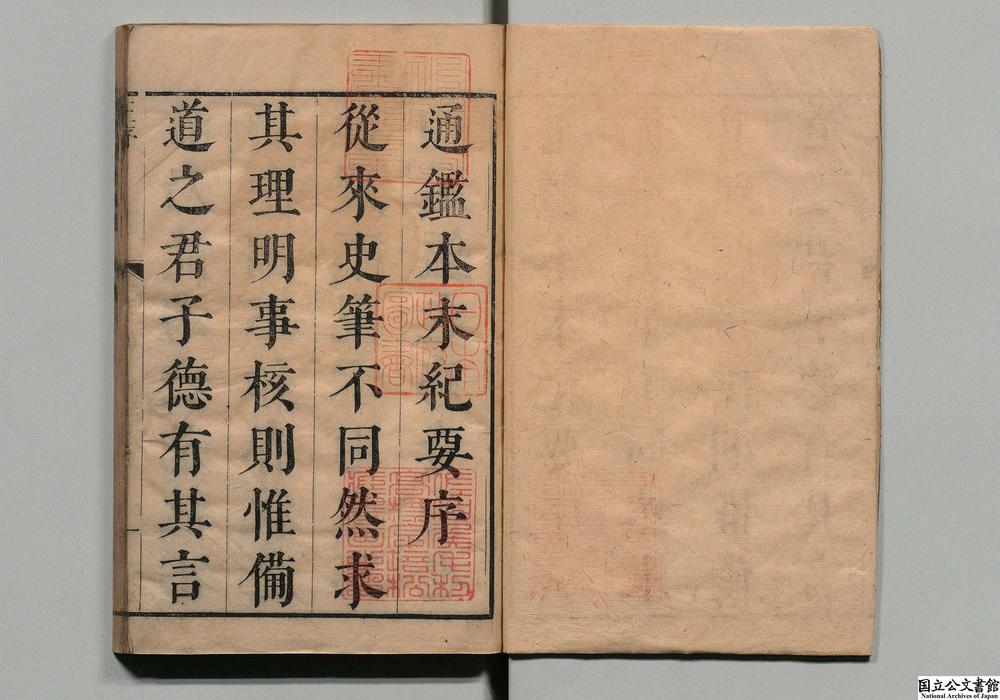 通鑑本末紀要序
從來史筆不同然求
其理明事核則惟備
道之君子德有其言
日本
國立公文書館
National Archives of Japan